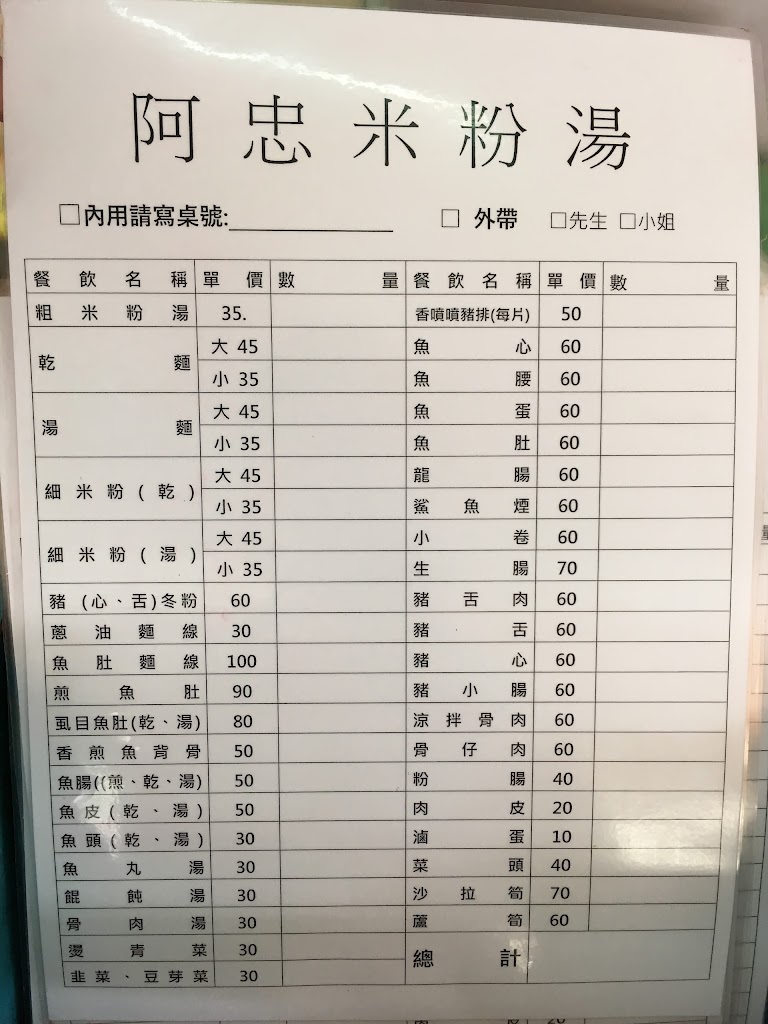 阿忠米粉湯
□內用請寫桌號:____________ □ 外帶 □先生 □小姐
餐飲名稱 單價 數量 餐飲名稱 單價 數量
粗米粉湯 35. 香噴噴豬排(每片) 50
乾麵 大 45 魚心 60
小 35 魚腰 60
湯麵 大 45 魚蛋 60
小 35 魚肚 60
細米粉(乾) 大 45 龍腸 60
小 35 鯊魚煙 60
細米粉(湯) 大 45 小卷 60
小 35 生腸 70
豬(心、舌)冬粉 60 豬舌肉 60
蔥油麵線 30 豬舌 60
魚肚麵線 100 豬心 60
煎魚肚 90 豬小腸 60
虱目魚肚(乾、湯) 80 涼拌骨肉 60
香煎魚背骨 50 骨仔肉 60
魚腸((煎、乾、湯) 50 粉腸 40
魚皮(乾、湯) 50 肉皮 20
魚頭(乾、湯) 30 滷蛋 10
魚丸湯 30 菜頭 40
餛飩湯 30 沙拉筍 70
骨肉湯 30 蘆筍 60
燙青菜 30 總計
韭菜、豆芽菜 30